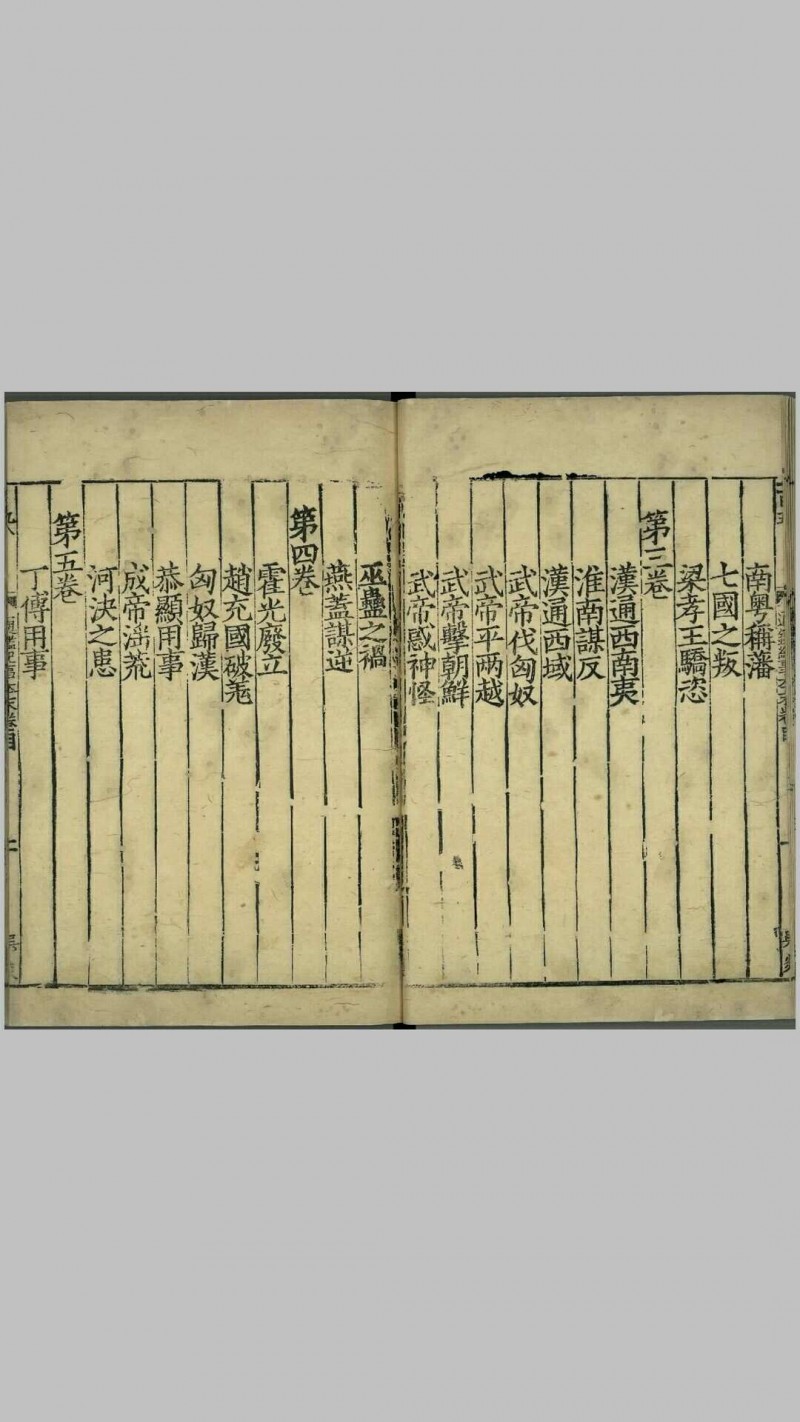 南粤稱藩
七國之叛
梁孝王驕恣
第三卷
漢通西南夷
淮南謀反
漢通西域
武帝伐匈奴
武帝平兩越
武帝擊朝鮮
武帝惑神怪
巫蠱之禍
燕蓋謀逆
第四卷
霍光廢立
趙充國破羌
匈奴歸漢
恭顯用事
成帝淫荒
河決之患
第五卷
丁傅用事